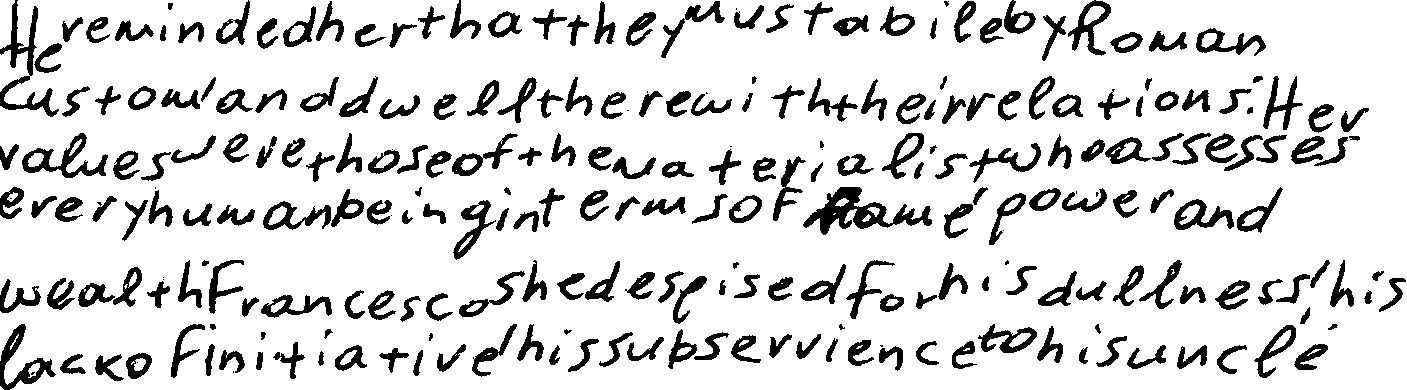 He reminded her that they must abide by Roman
custom, and dwell there with their relations. Her
values were those of the materialist who assesses
every human being in terms of fame, power and
wealth. Francesco she despised for his dullness, his
lack of initiative, his subservience to his uncle